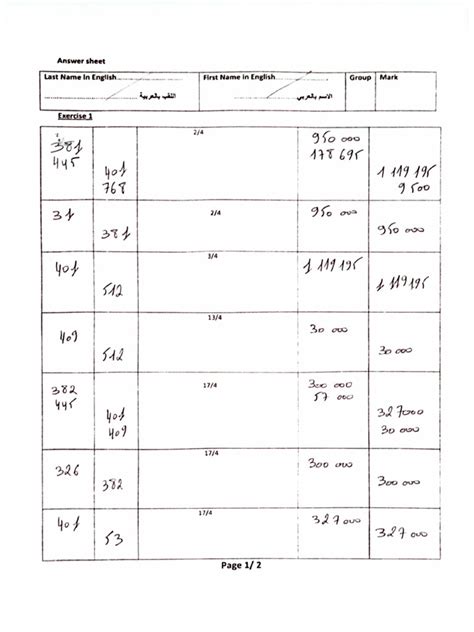 Answer sheet
Last Name In English............ First Name In English............ Group Mark
............ اللقب بالعربية ............ الاسم بالعربي
Exercise 1
2/4
381 950 000
445 178 695
401 1 119 195
768 9 500
31 2/4 950 000
381 950 000
3/4
401 1 119 195
512 1 119 195
13/4
409 30 000
512
17/4
382 300 000
445 57 000
401 327000
409 30 000
17/4
326 300 000
382 300 000
17/4
401 327 000
53 327 000
Page 1/ 2